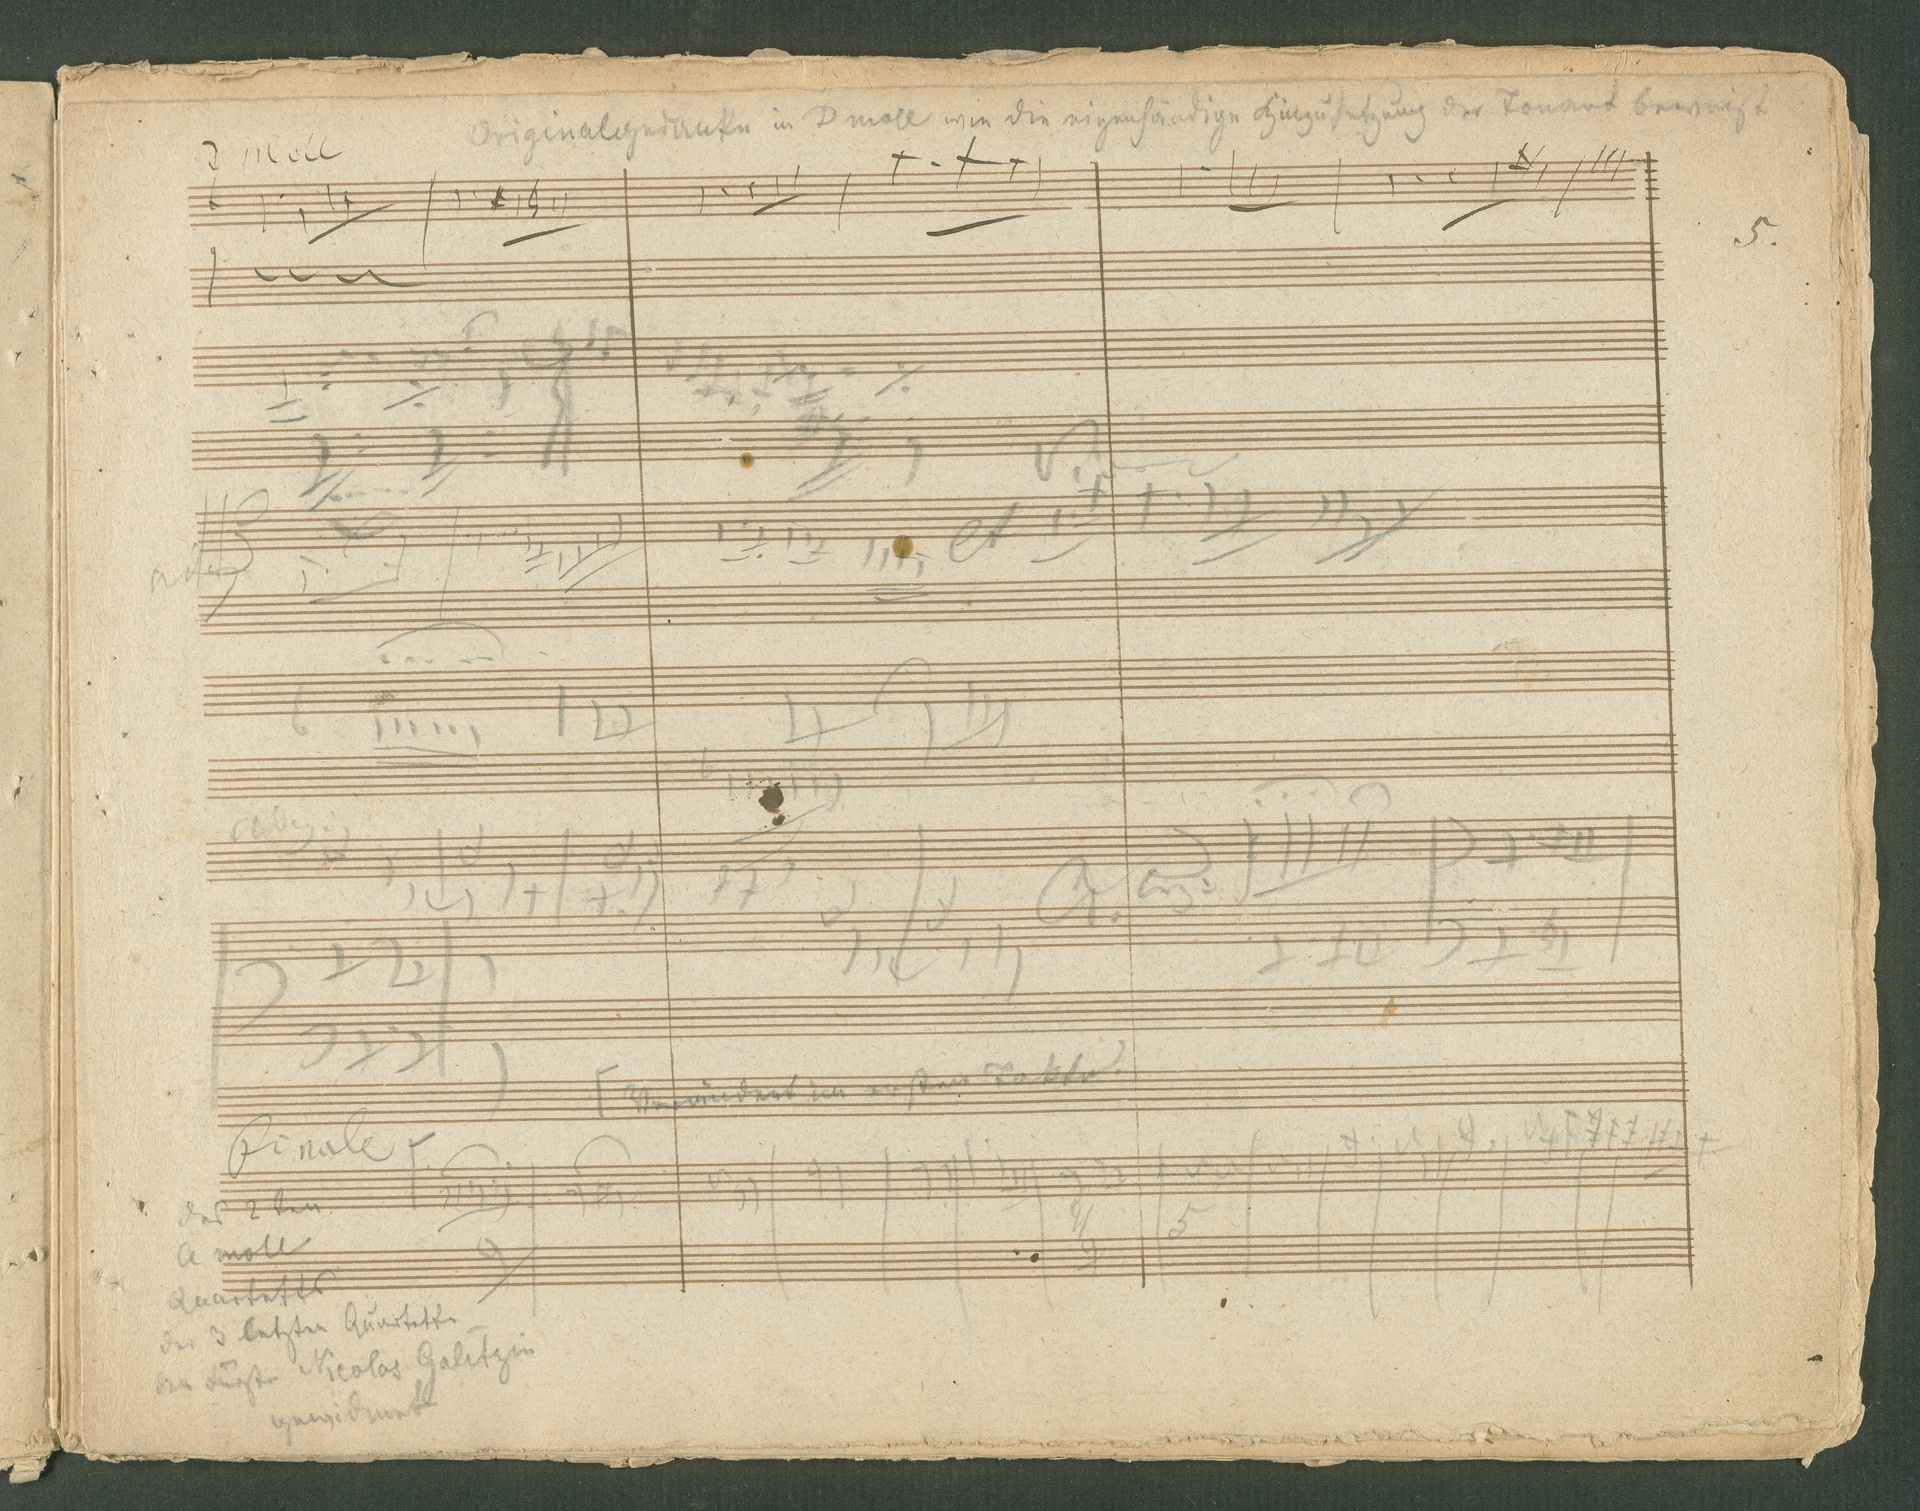 Originalgedanke in D moll wie die eigenhändige Hinzusetzung der Tonart beweist
D moll
5.
[Verändert im ersten Takte
Finale
des 2ten
A moll
Quartetts
der 3 letzten Quartette
dem Fürst Nicolas Galitzin
gewidmet